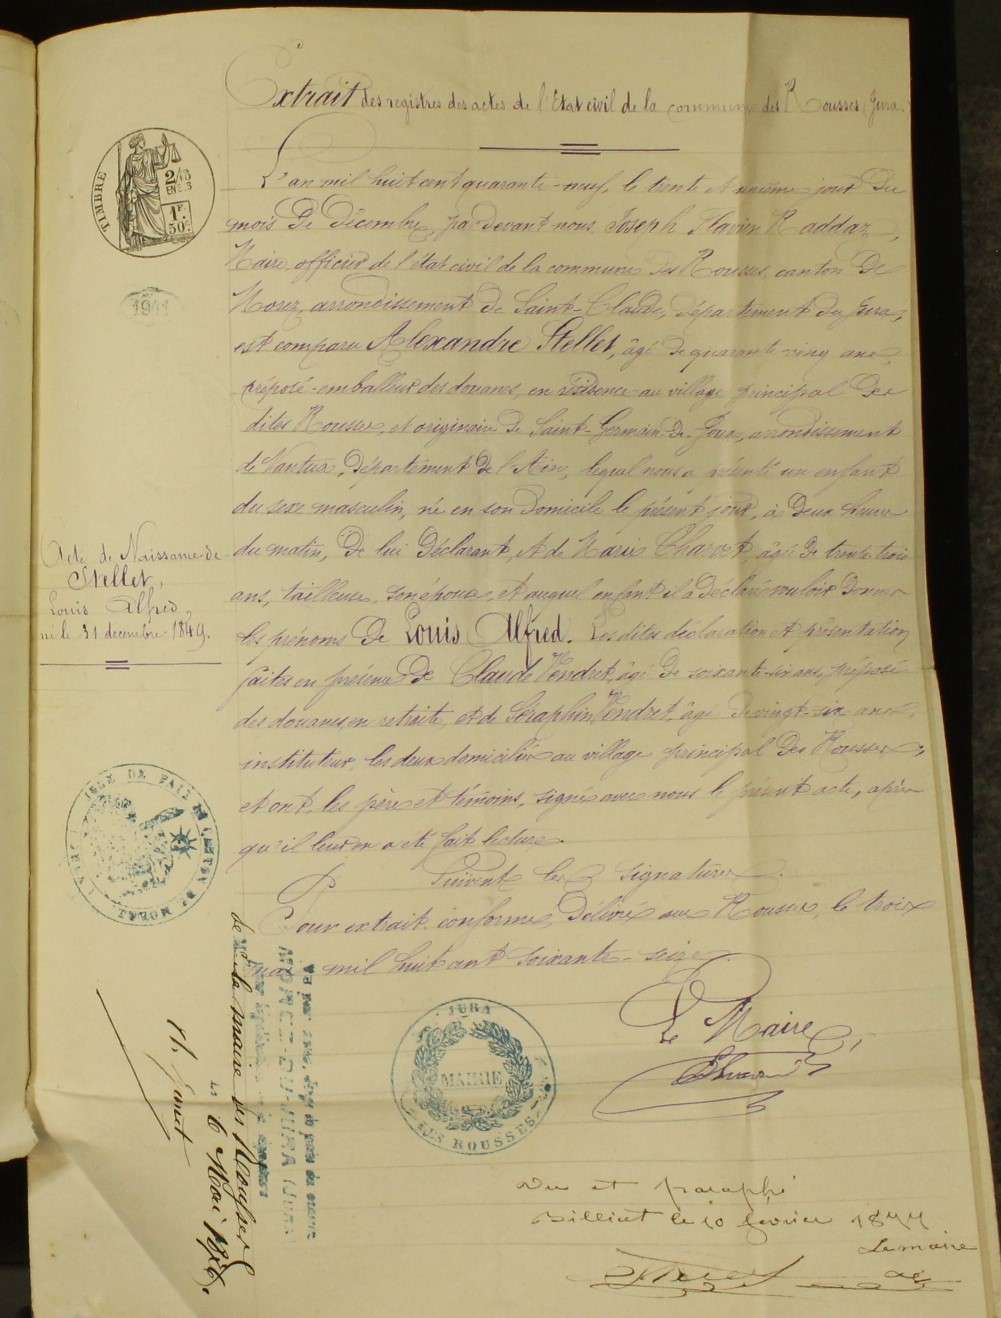 Extrait des registres des actes de l'Etat civil de la commune des Rousses (Jura.
TIMBRE
2/10
EN S.
1F.
50c.
1941
L'an mil huit cent quarante-neuf, le trente et unième jour du
mois de décembre, par devant nous, Joseph Flavien Raddaz,
Maire, officier de l'état civil de la commune des Rousses, canton de
Morez, arrondissement de Saint-Claude, département du Jura,
est comparu Alexandre Stellet, âgé de quarante cinq ans,
préposé-emballeur des douanes, en résidence au village principal des
dites Rousses, et originaire de Saint-Germain-de-Joux, arrondissement
de Nantua, département de l'Ain, lequel nous a présenté un enfant
du sexe masculin, né en son domicile le présent jour, à deux heures
du matin, de lui déclarant, et de Marie Charot, âgée de trente trois
ans, tailleuse, son épouse, et auquel enfant il a déclaré vouloir donner
les prénoms de Louis Alfred. Les dites déclaration et présentation
faites en présence de Claude Vendret, âgé de soixante-six ans, préposé
des douanes en retraite, et de Séraphin Vendret, âgé de vingt-six ans,
instituteur, les deux domiciliés au village principal des Rousses,
et ont, les père et témoins, signé avec nous le présent acte, après
qu'il leur en a été fait lecture.
Suivent les signatures.
Pour extrait conforme, délivré aux Rousses, le trois
mai mil huit cent soixante-seize.
Le Maire,
Acte de Naissance de
Stellet,
Louis Alfred,
né le 31 décembre 1849.
JUSTICE DE PAIX DU CANTON DE MOREZ
JURA
MAIRIE
LES ROUSSES
MOREZ-DU-JURA (JURA)
de la mairie des Rousses
le 6 Mai 1876.
Vu et paraphé
Billiat le 10 février 1877
Le maire